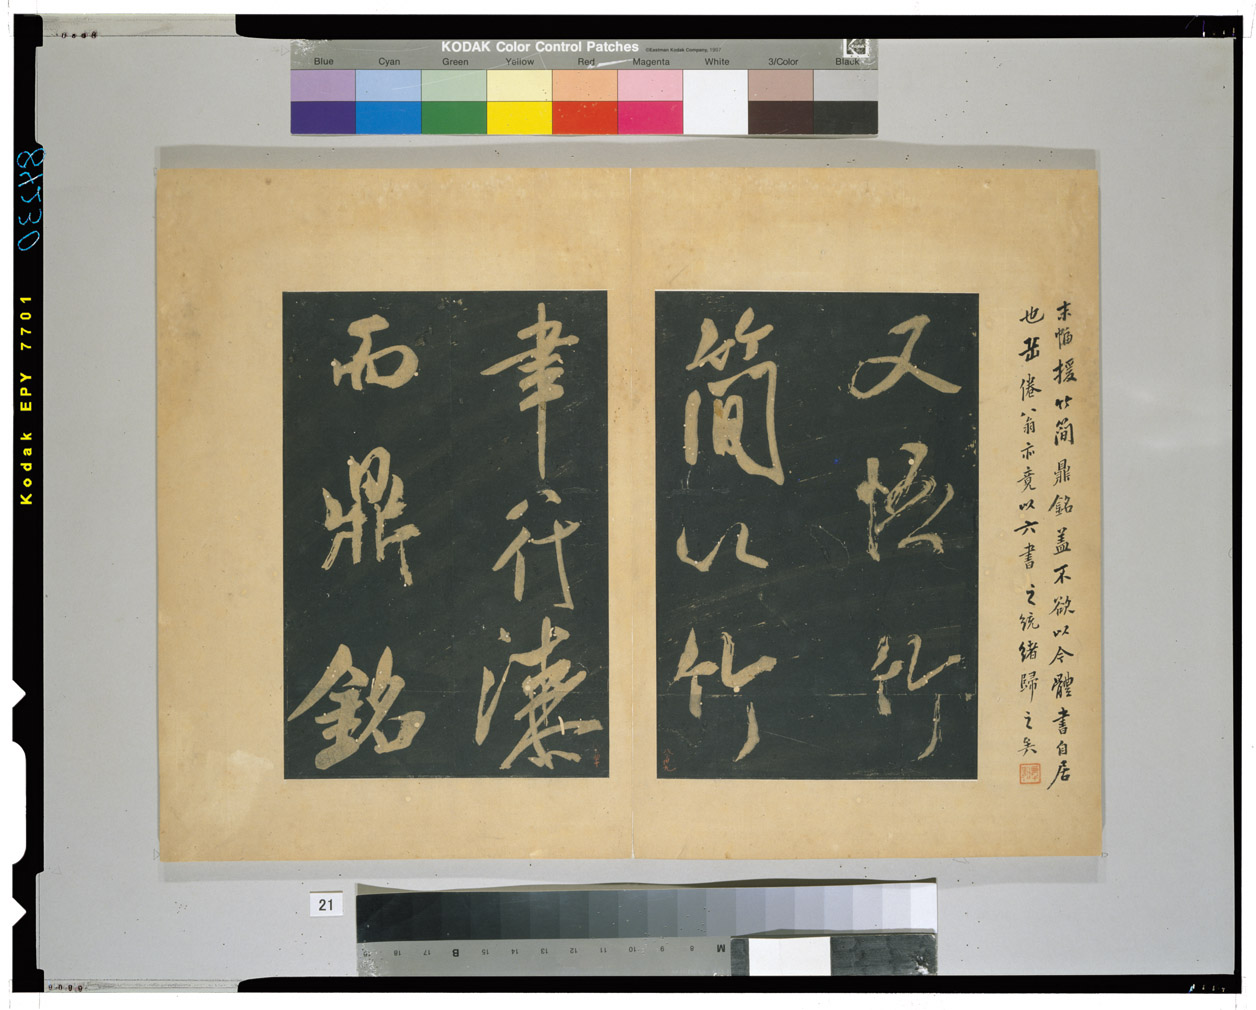 KODAK Color Control Patches
©Eastman Kodak Company, 1997
Blue Cyan Green Yellow Red Magenta White 3/Color Black
末幅援竹簡鼎銘蓋不欲以今體書自居
也 倦翁亦竟以六書之統緒歸之矣
又 竹
簡以竹
聿行漆
而鼎銘
21
Kodak EPY 7701
8 M B